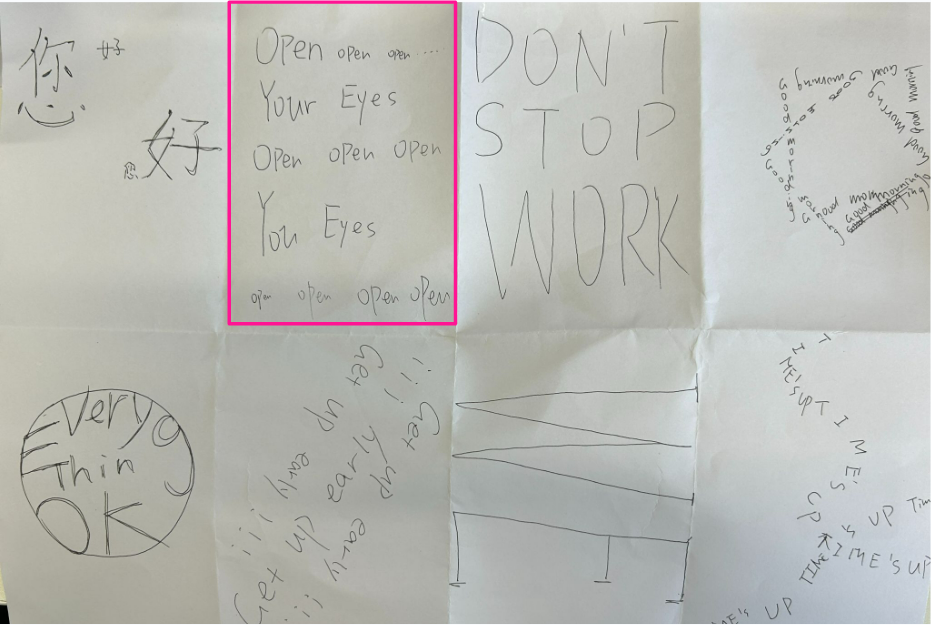 您 女子
您 好
Open open open.....
Your Eyes
Open Open Open
You Eyes
open open open open
DON'T
STOP
WORK
Good morning
Good morning
Good morning
Good morning
Good morning
Every
Thing
OK
Get up early !!!
Get up early !!!
Get up early !!
TIME'S UP
TIME'S UP
TIME'S UP Tim
TIME'S UP
ME'S UP